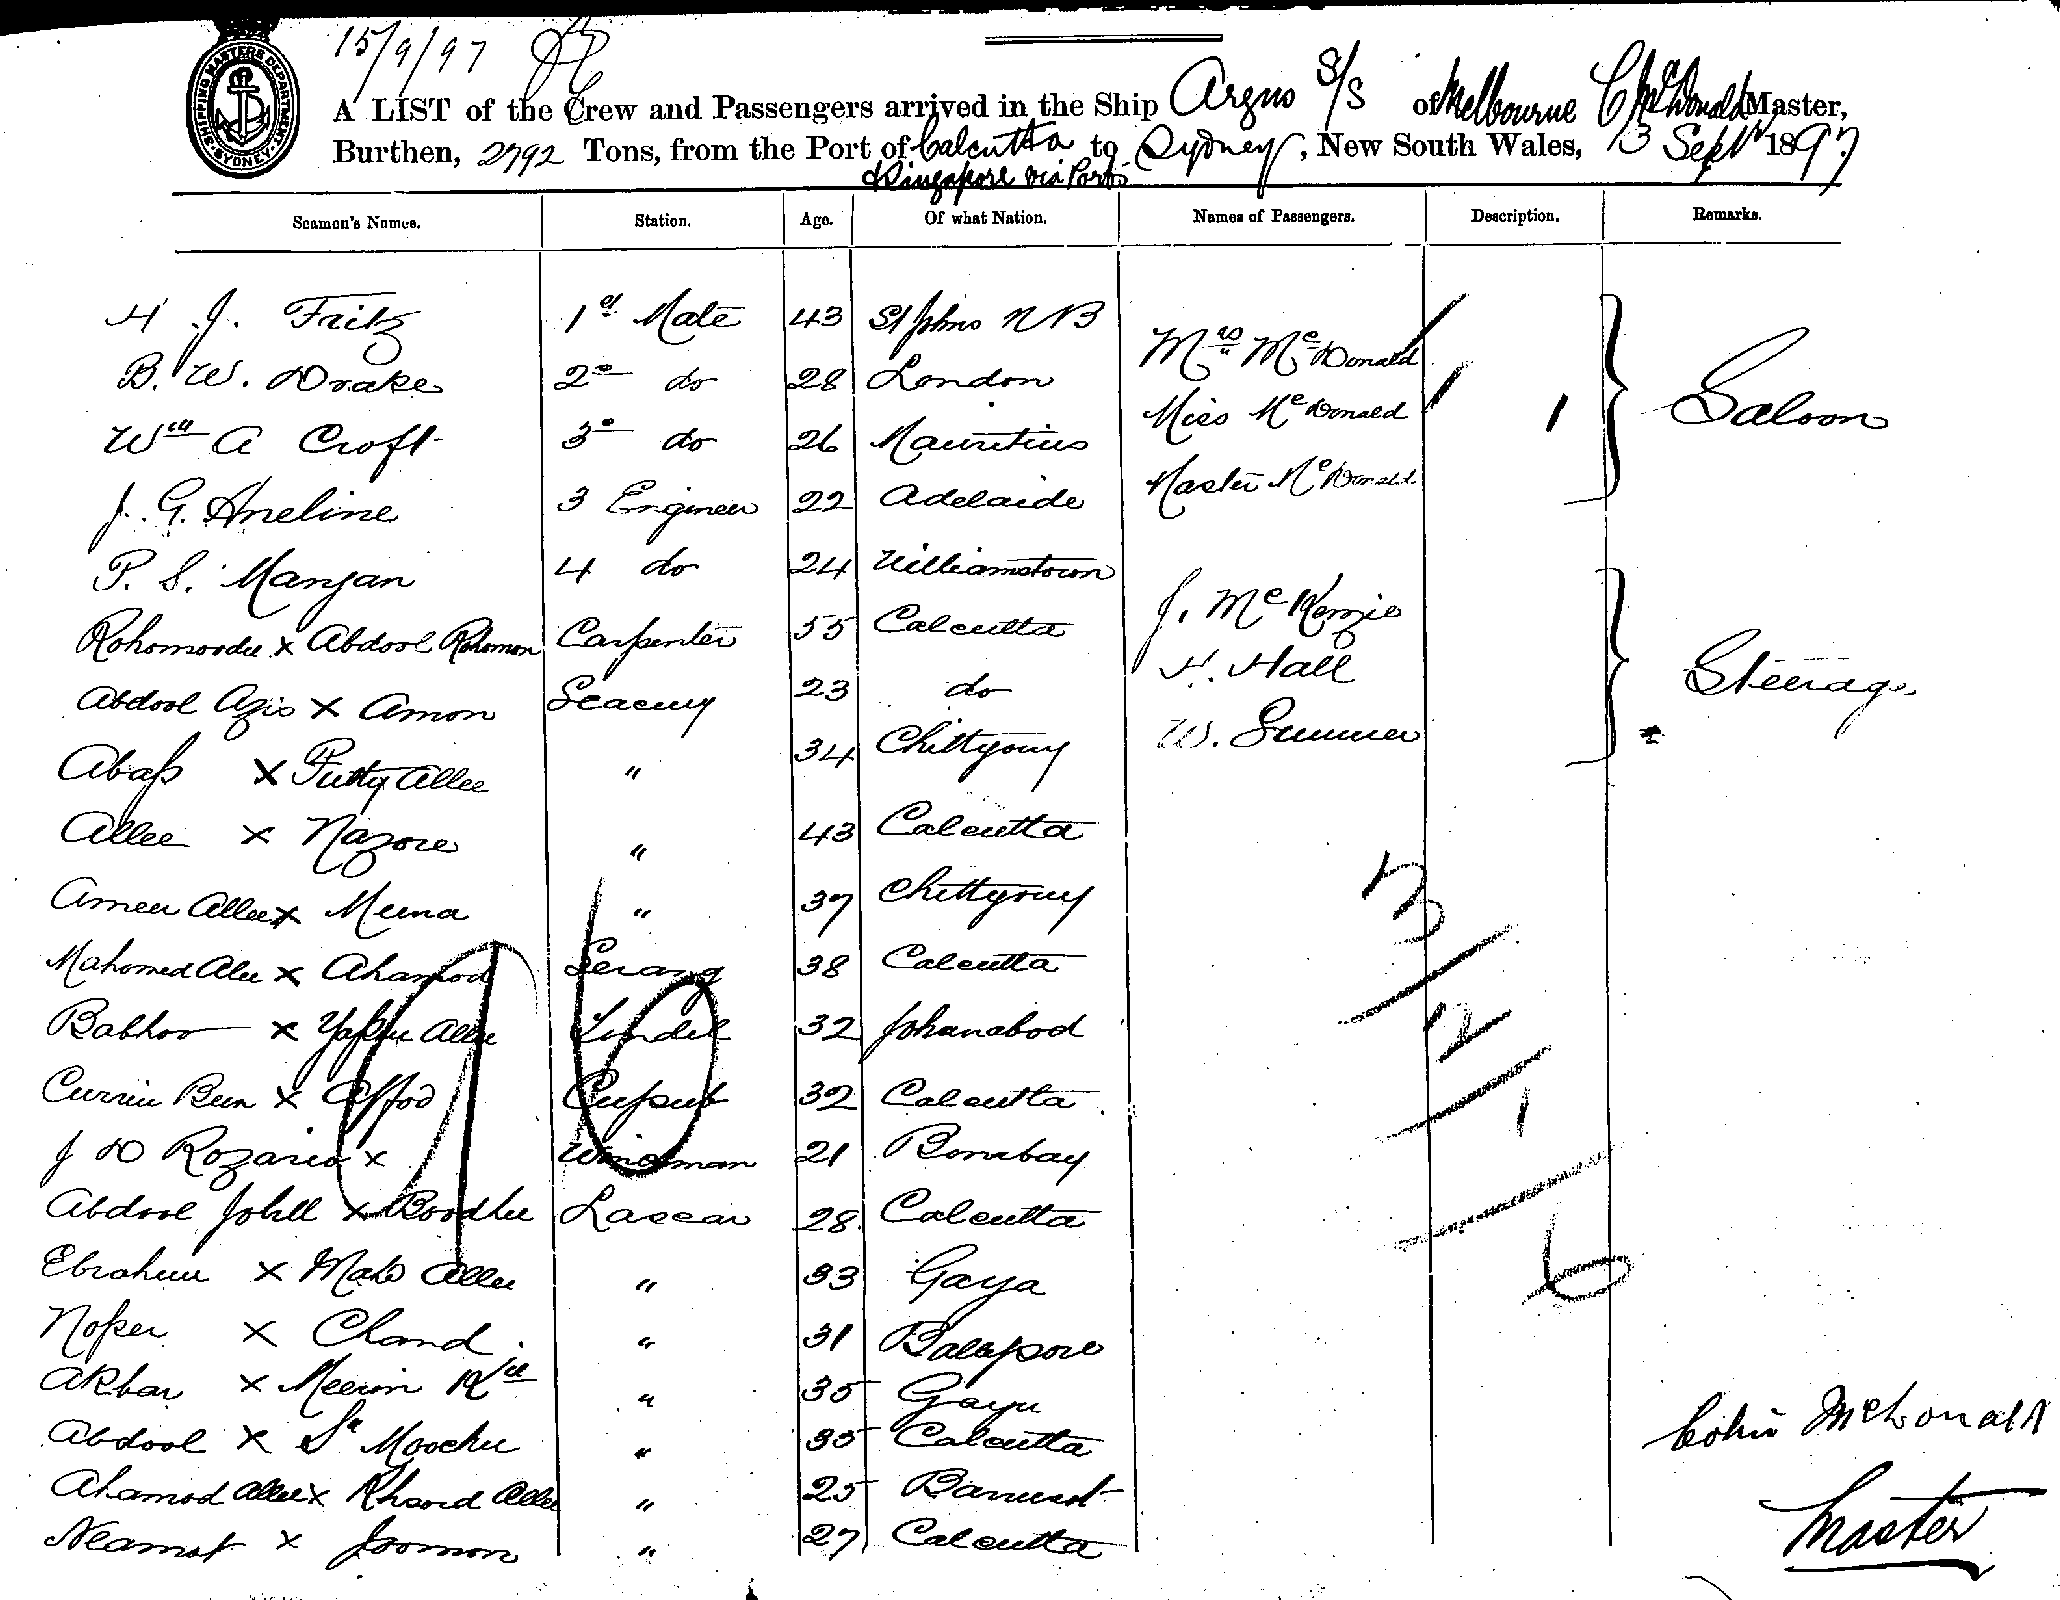 15/9/97
SHIPPING MASTERS DEPARTMENT SYDNEY
A LIST of the Crew and Passengers arrived in the Ship Argus S/S of Melbourne C McDonald Master,
Burthen, 2792 Tons, from the Port of Calcutta to Sydney, New South Wales, 13 Septr 1897
& Singapore via Ports
Seamen's Names. Station. Age. Of what Nation. Names of Passengers. Description. Remarks.
H J. Fritz 1st Mate 43 St Johns N B
Mrs McDonald
B. W. Drake 2nd do 28 London
Miss McDonald 1 Saloon
Wm A Croft 3rd do 26 Mauritius
Master McDonald
J. G. Aneline 3 Engineer 22 Adelaide
P. S. Mangan 4 do 24 Williamstown
J. McKenzie
Rohomoodee x Abdool Rohomon Carpenter 55 Calcutta
H. Hall Steerage
Abdool Azis x Amon Seacuny 23 do
W. Sumner
Abass x Futty Allee " 34 Chittgong
Allee x Nazore " 43 Calcutta
Ameer Allee x Meena " 37 Chittgong
3
Mahomed Alee x Ahamod Serang 38 Calcutta
Babhoo x Allee Tindel 32 Johanabod
2
Currim Bux x Affod 32 Calcutta
1
J D Rozario x Winchman 21 Bombay
Abdool Jobll x Boodhee Lascar 28 Calcutta
Ebrahim x Mahd Allee " 33 Gaya
6
Noper x Chand " 31 Balapore
Akbar x Meerim " 35 Gaya
Abdool x Sk Moochee " 35 Calcutta
Colin McDonald
Ahamod Allee x Khared Allee " 25 Baruset
Master
Neamot x Joomon " 27 Calcutta
16